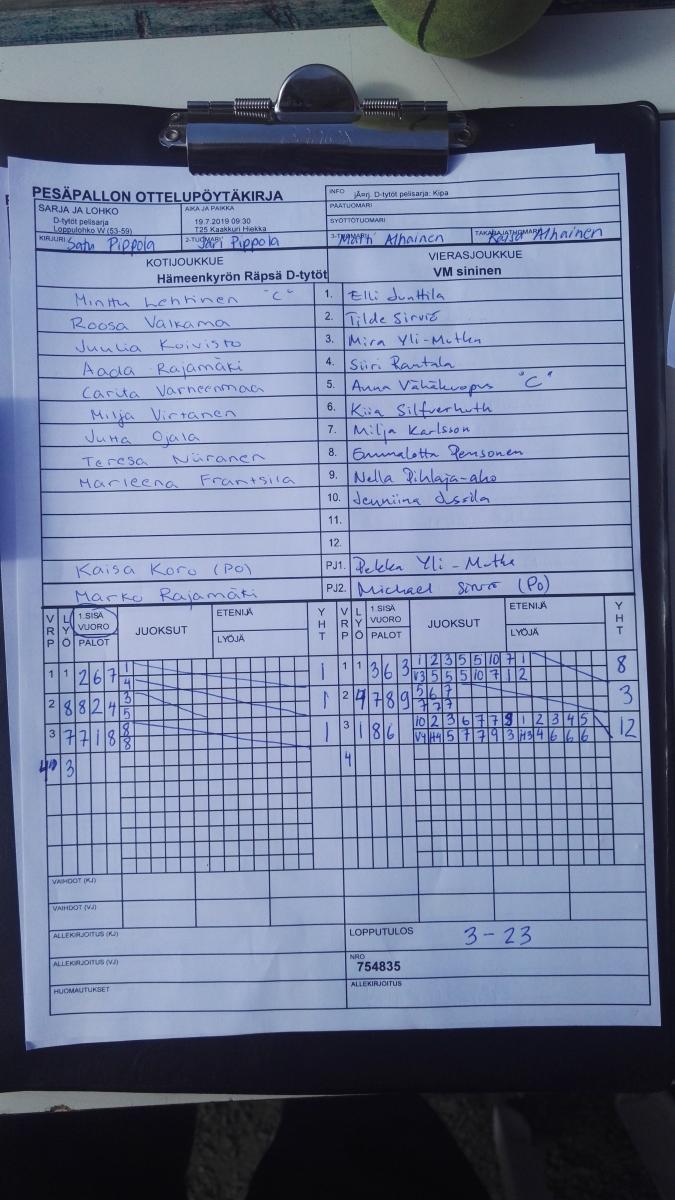 PESÄPALLON OTTELUPÖYTÄKIRJA
INFO jÃ¤rj. D-tytöt pelisarja: Kipa
SARJA JA LOHKO
D-tytöt pelisarja
Loppulohko W (53-59)
AIKA JA PAIKKA
19.7.2019 09:30
T25 Kaakkuri Hiekka
PÄÄTUOMARI
SYÖTTÖTUOMARI
KIRJURI Satu Pippola
2-TUOMARI Jari Pippola
3-TUOMARI Matti Alhainen
Kaisa Alhainen
KOTIJOUKKUE
Hämeenkyrön Räpsä D-tytöt
VIERASJOUKKUE
VM sininen
Minttu Lehtinen "C" 1. Elli Junttila
Roosa Valkama 2. Tilde Sirviö
Juulia Koivisto 3. Mira Yli-Mutka
Aada Rajamäki 4. Siiri Rantala
Carita Varheenmaa 5. Anna Vähäkuopus "C"
Milja Virtanen 6. Kiia Silfverhuth
Jutta Ojala 7. Milja Karlsson
Teresa Näränen 8. Emmalotta Pensonen
Marleena Frantsila 9. Nella Pihlaja-aho
10. Jenniina Jussila
11.
12.
Kaisa Koro (PO) PJ1. Pekka Yli-Mutka
Marko Rajamäki PJ2. Michael Sirviö (PO)
VRP LYÖ 1.SISÄ VUORO PALOT JUOKSUT ETENIJÄ LYÖJÄ YHT VRP LYÖ 1.SISÄ VUORO PALOT JUOKSUT ETENIJÄ LYÖJÄ YHT
1 1 2 6 7 1 1 1 1 3 6 3 1 2 3 5 5 10 7 1 8
4 V3 5 5 5 10 7 1 2
2 8 8 2 4 3 1 2 4 7 8 9 5 6 7 3
5 7 7 7
3 7 7 1 8 8 1 3 1 8 6 10 2 3 6 7 7 9 1 2 3 4 5 12
8 V4 H4 5 7 7 9 3 H3 4 6 6 6
3 4
VAIHDOT (KJ)
VAIHDOT (VJ)
ALLEKIRJOITUS (KJ)
LOPPUTULOS 3-23
ALLEKIRJOITUS (VJ)
NRO
754835
HUOMAUTUKSET
ALLEKIRJOITUS